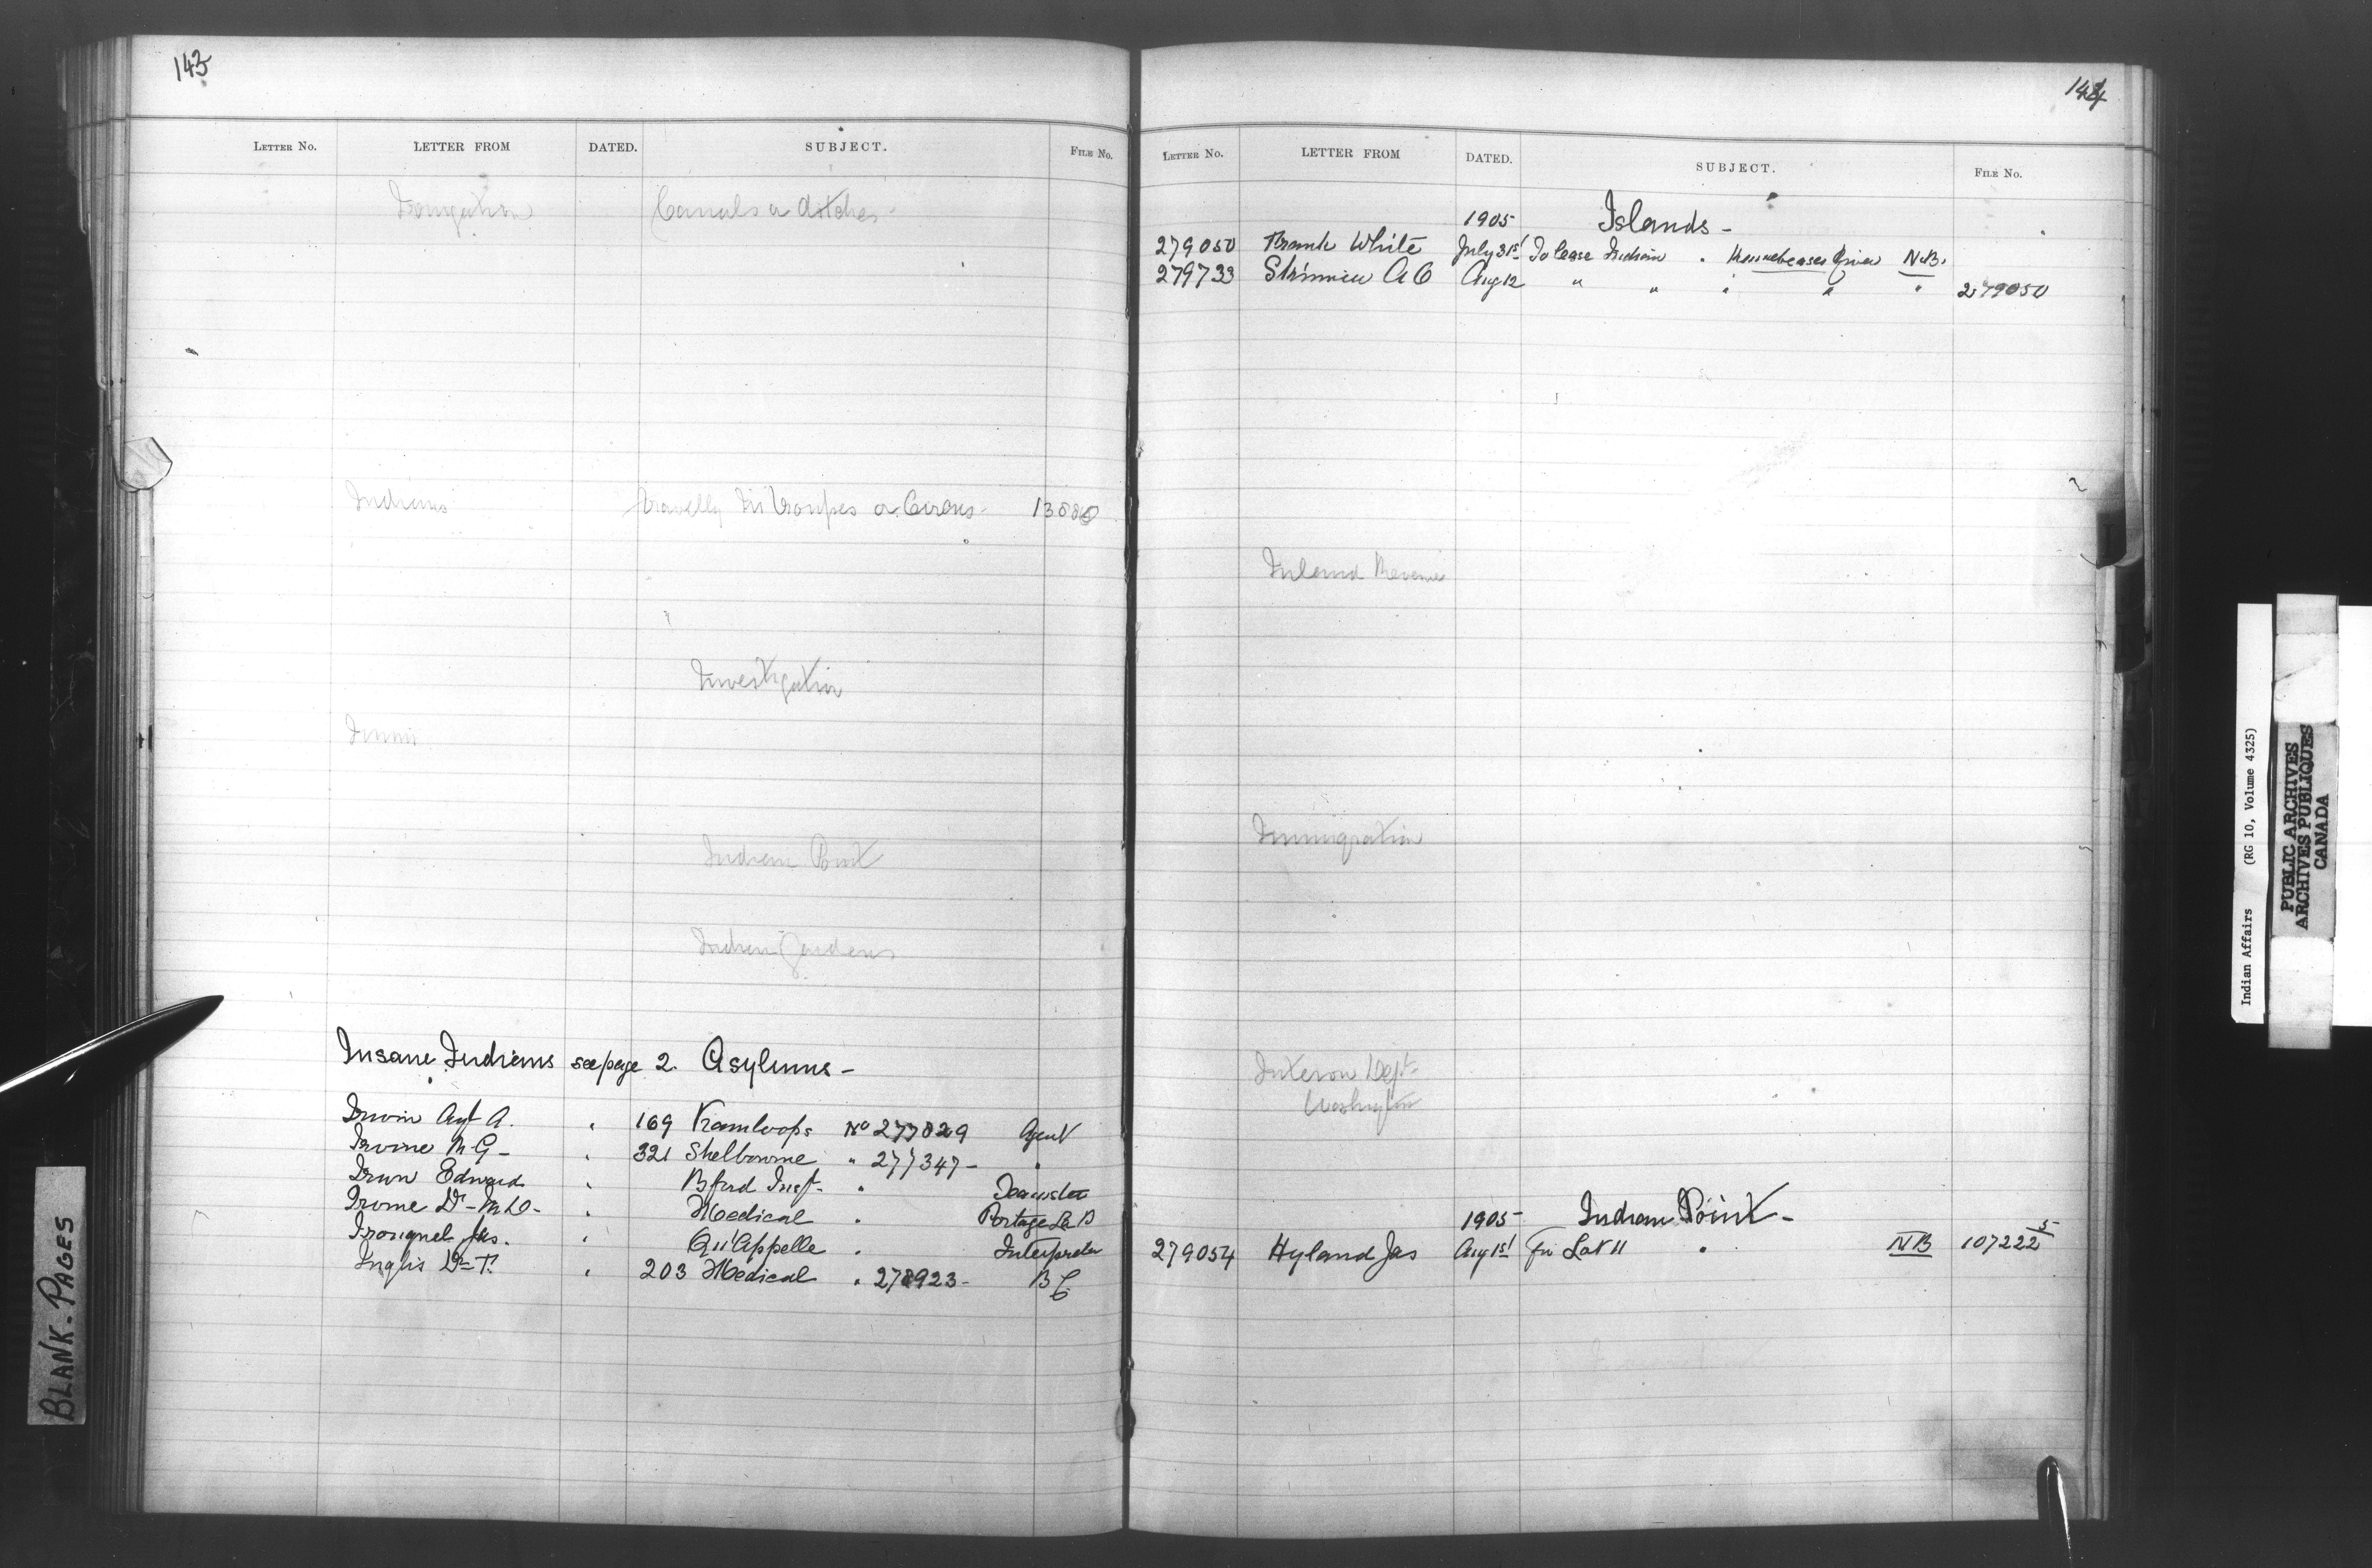 143
LETTER NO. LETTER FROM DATED. SUBJECT. FILE No.
Irrigation Canals or ditches-
Indians Travellg in troupes or Circus-
Investigation
Indian Point
Indian Gardens
Insane Indians see page 2. Asylums-
Irwin Agt A. " 169 Kamloops No 277829 Agent
Irvine M G- " 321 Shelbourne " 277347- "
Irwin Edward " Bford Inspt- " Teamster
" Medical " Portage La P
" Qu'Appelle " Interpreter
Inglis Dr T. " 203 Medical " 278923- BC
144
LETTER No. LETTER FROM DATED. SUBJECT. FILE No.
1905 Islands-
279050 Frank White July 31st To lease Indian " Kennebecases River N.B.
279733 A C Aug 12 " " " " " 279050
Inland Revenue
Immigration
Interior Dept-
Washington
1905- Indian Point-
279054 Hyland Jas Aug 1st for Lot 11 " NB 107222 5
BLANK-PAGES
Indian Affairs (RG 10, Volume 4325)
PUBLIC ARCHIVES
ARCHIVES PUBLIQUES
CANADA